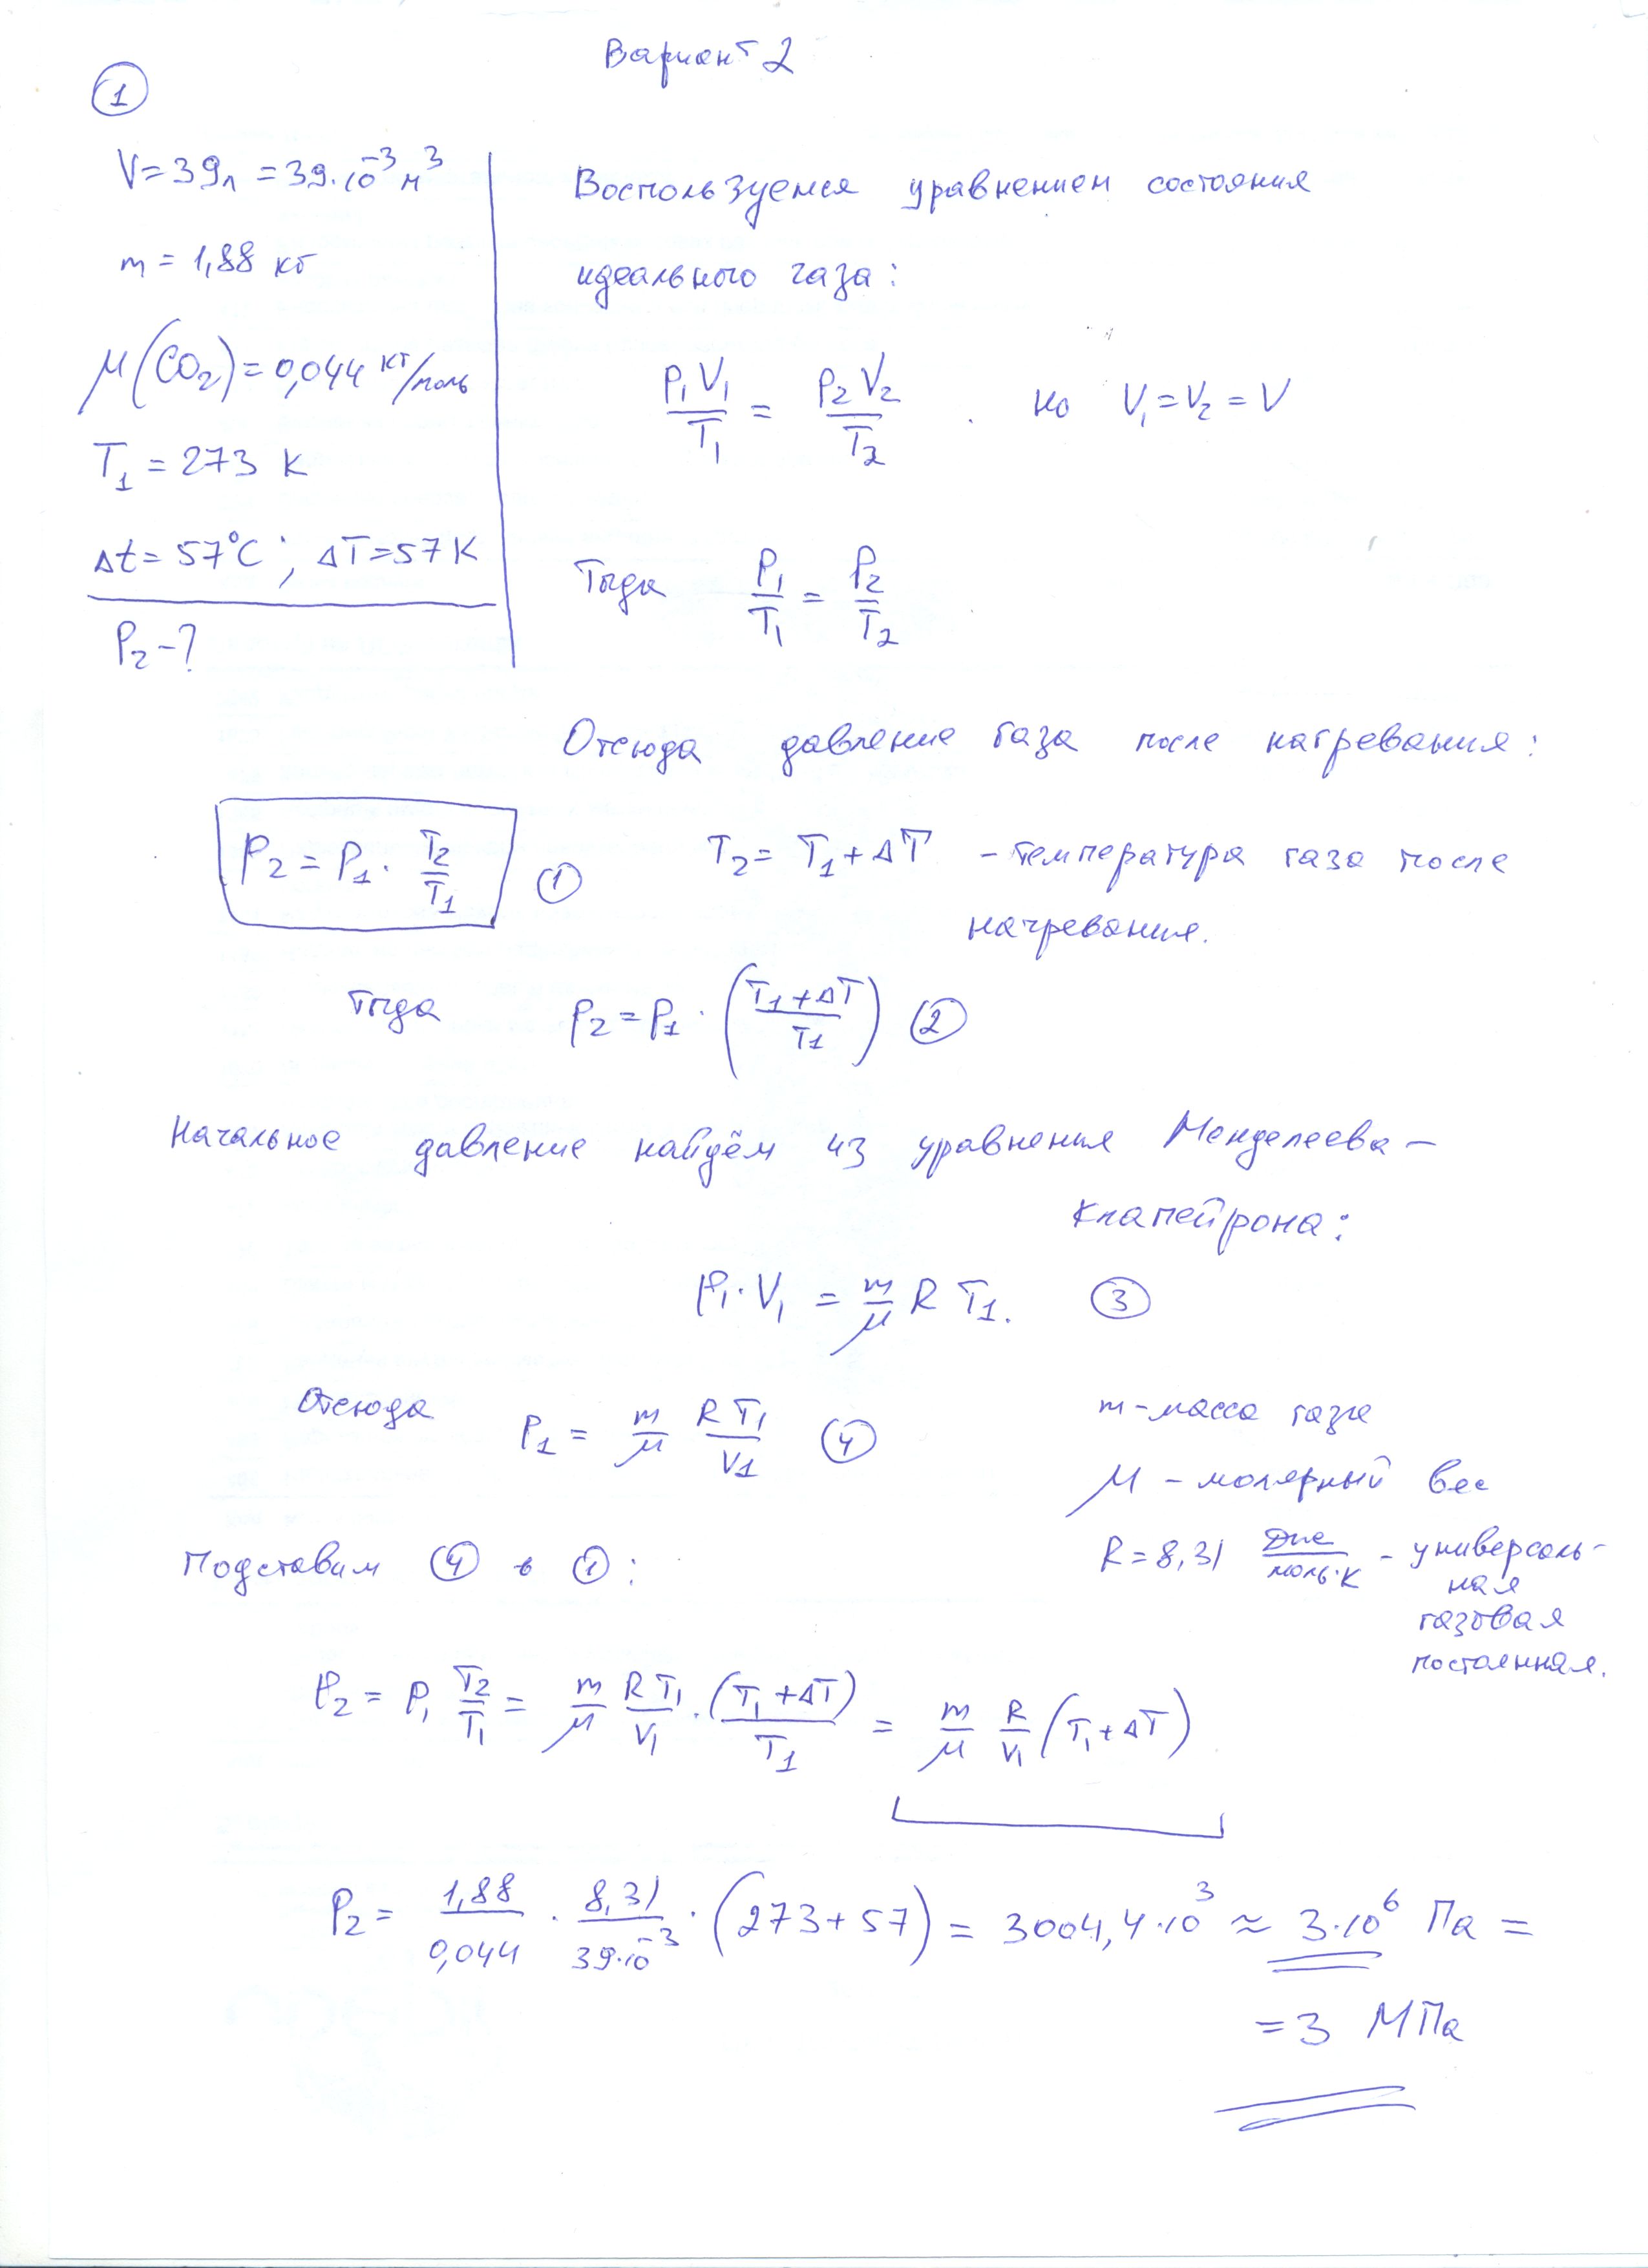 Вариант 2
①
V = 39 л = 39·10⁻³ м³
m = 1,88 кг
μ(CO₂) = 0,044 кг/моль
T₁ = 273 К
Δt = 57°C ; ΔT = 57 К
P₂ - ?
Воспользуемся уравнением состояния
идеального газа:
P₁V₁/T₁ = P₂V₂/T₂ . но V₁ = V₂ = V
Тогда P₁/T₁ = P₂/T₂
Отсюда давление газа после нагревания:
P₂ = P₁ · T₂/T₁ ① T₂ = T₁ + ΔT - температура газа после
нагревания.
Тогда P₂ = P₁ · ((T₁ + ΔT)/T₁) ②
Начальное давление найдём из уравнения Менделеева –
Клапейрона:
P₁ · V₁ = m/μ R T₁. ③
Отсюда P₁ = m/μ RT₁/V₁ ④
m - масса газа
μ - молярный вес
R = 8,31 Дж/моль·К - универсаль-
ная
газовая
постоянная.
Подставим ④ в ①:
P₂ = P₁ T₂/T₁ = m/μ RT₁/V₁ · (T₁ + ΔT)/T₁ = m/μ R/V₁ (T₁ + ΔT)
P₂ = 1,88/0,044 · 8,31/39·10⁻³ · (273 + 57) = 3004,4·10³ ≈ 3·10⁶ Па =
= 3 МПа